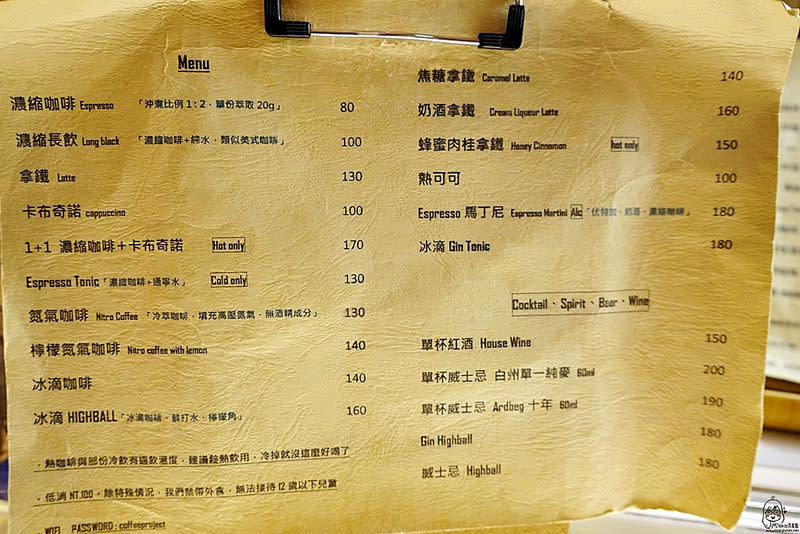 Menu
濃縮咖啡 Espresso 「沖煮比例 1:2，單份萃取 20g」 80
濃縮長飲 Long black 「濃縮咖啡+純水、類似美式咖啡」 100
拿鐵 Latte 130
卡布奇諾 cappuccino 100
1+1 濃縮咖啡+卡布奇諾 Hot only 170
Espresso Tonic「濃縮咖啡+通寧水」 Cold only 130
氮氣咖啡 Nitro Coffee 「冷萃咖啡，填充高壓氮氣，無酒精成分」 130
檸檬氮氣咖啡 Nitro coffee with lemon 140
冰滴咖啡 140
冰滴 HIGHBALL「冰滴咖啡、蘇打水、檸檬角」 160
．熱咖啡與部份冷飲有適飲溫度，建議趁熱飲用，冷掉就沒這麼好喝了
．低消 NT.100。除特殊情況，我們禁帶外食，無法接待 12 歲以下兒童
．WIFI PASSWORD：coffeeproject
焦糖拿鐵 Caramel Latte 140
奶酒拿鐵 Cream Liqueur Latte 160
蜂蜜肉桂拿鐵 Honey Cinnamon hot only 150
熱可可 100
Espresso 馬丁尼 Espresso Martini Alc「伏特加、奶酒、濃縮咖啡」 180
冰滴 Gin Tonic 180
Cocktail、Spirit、Beer、Wine
單杯紅酒 House Wine 150
單杯威士忌 白州單一純麥 60ml 200
單杯威士忌 Ardbeg 十年 60ml 190
Gin Highball 180
威士忌 Highball 180